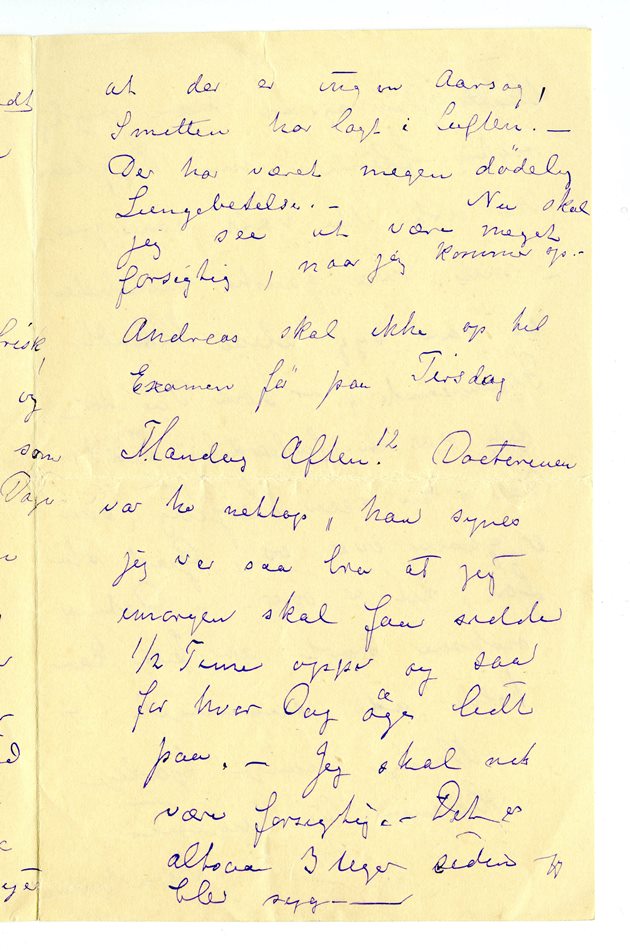 at der er ingen Aarsag,
Smitten har lagt i Luften. –
Der har været megen dødelig
Lungebetelse. – Nu skal
jeg see at være meget
forsigtig, naar jeg kommer op. –
Andreas skal ikke op til
Examen fö paa Tirsdag
Mandag Aften. 12 Doctoren
var he nettop, han synes
jeg var saa bra at jeg
imorgen skal faa sidde
1/2 Time oppe og saa
for hver Dag øge lidt
paa. – Jeg skal nok
være forsigtig. – Det er
altsaa 3 Uger siden
blev syg —
frisk,
og
som
Dage